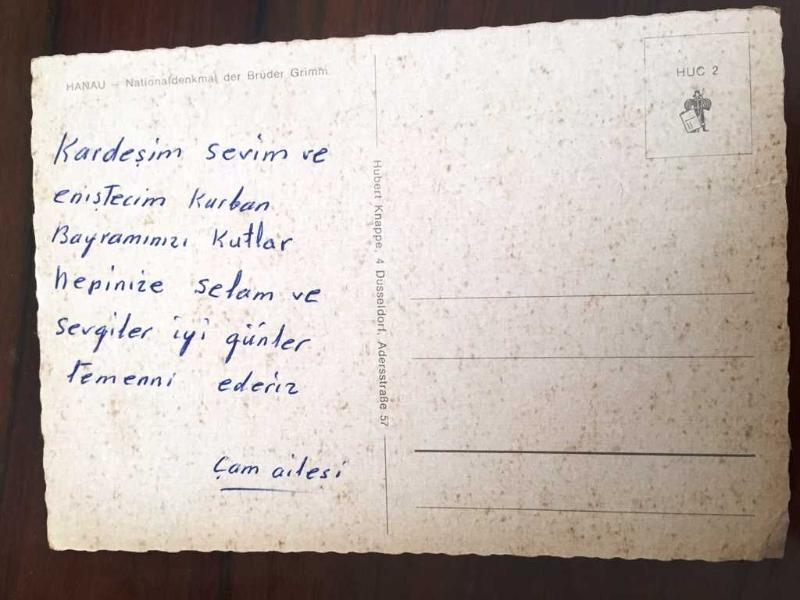 HANAU – Nationaldenkmal der Brüder Grimm
Kardeşim Sevim ve
eniştecim Kurban
Bayramınızı Kutlar
hepinize selam ve
sevgiler iyi günler
temenni ederiz
Çam ailesi
Hubert Knappe, 4 Düsseldorf, Adersstraße 57
HUC 2